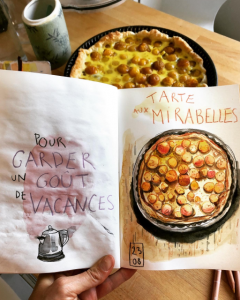 POUR
GARDER
UN GOÛT
DE
VACANCES
TARTE
AUX MIRABELLES
23
08